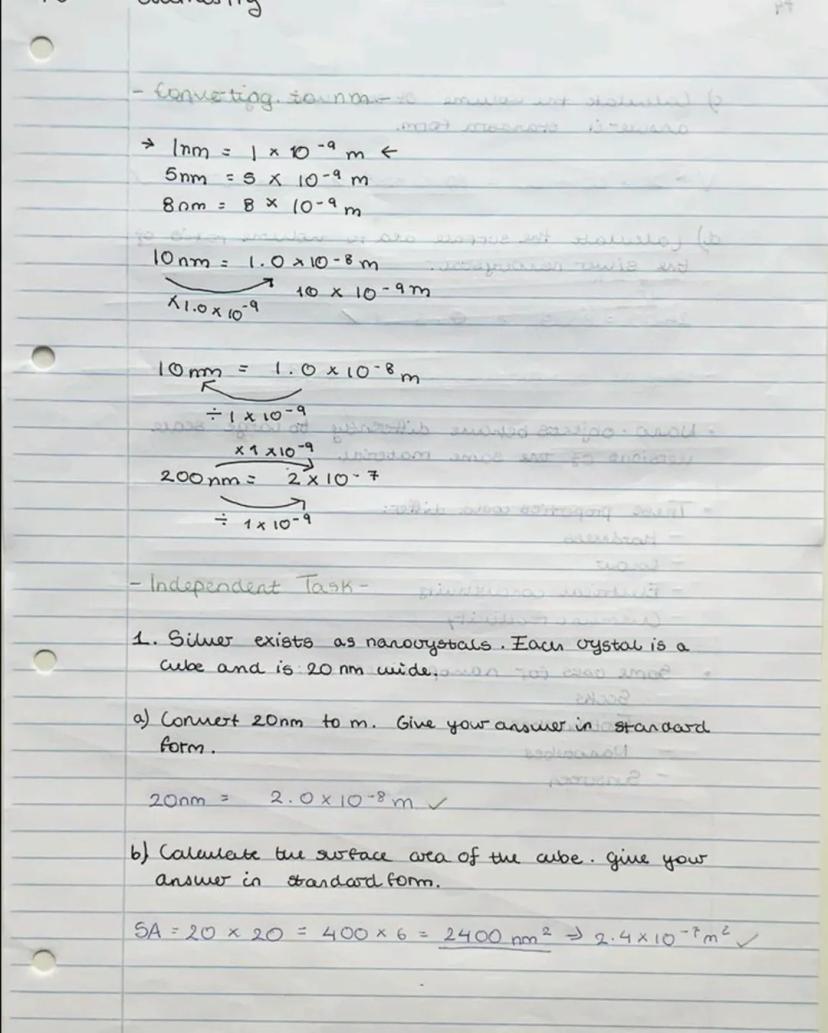 - Converting to nm -
→ 1nm = 1 × 10⁻⁹ m ←
5nm = 5 × 10⁻⁹ m
8nm = 8 × 10⁻⁹ m
10nm = 1.0 × 10⁻⁸ m
×1.0 × 10⁻⁹ 10 × 10⁻⁹ m
10nm = 1.0 × 10⁻⁸ m
÷ 1 × 10⁻⁹
× 1 × 10⁻⁹
200nm = 2 × 10⁻⁷
÷ 1 × 10⁻⁹
- Independent Task -
1. Silver exists as nanocrystals. Each crystal is a
cube and is 20 nm wide.
a) Convert 20nm to m. Give your answer in standard
form.
20nm = 2.0 × 10⁻⁸ m ✓
b) Calculate the surface area of the cube. Give your
answer in standard form.
SA = 20 × 20 = 400 × 6 = 2400 nm² ⇒ 2.4 × 10⁻⁷ m² ✓